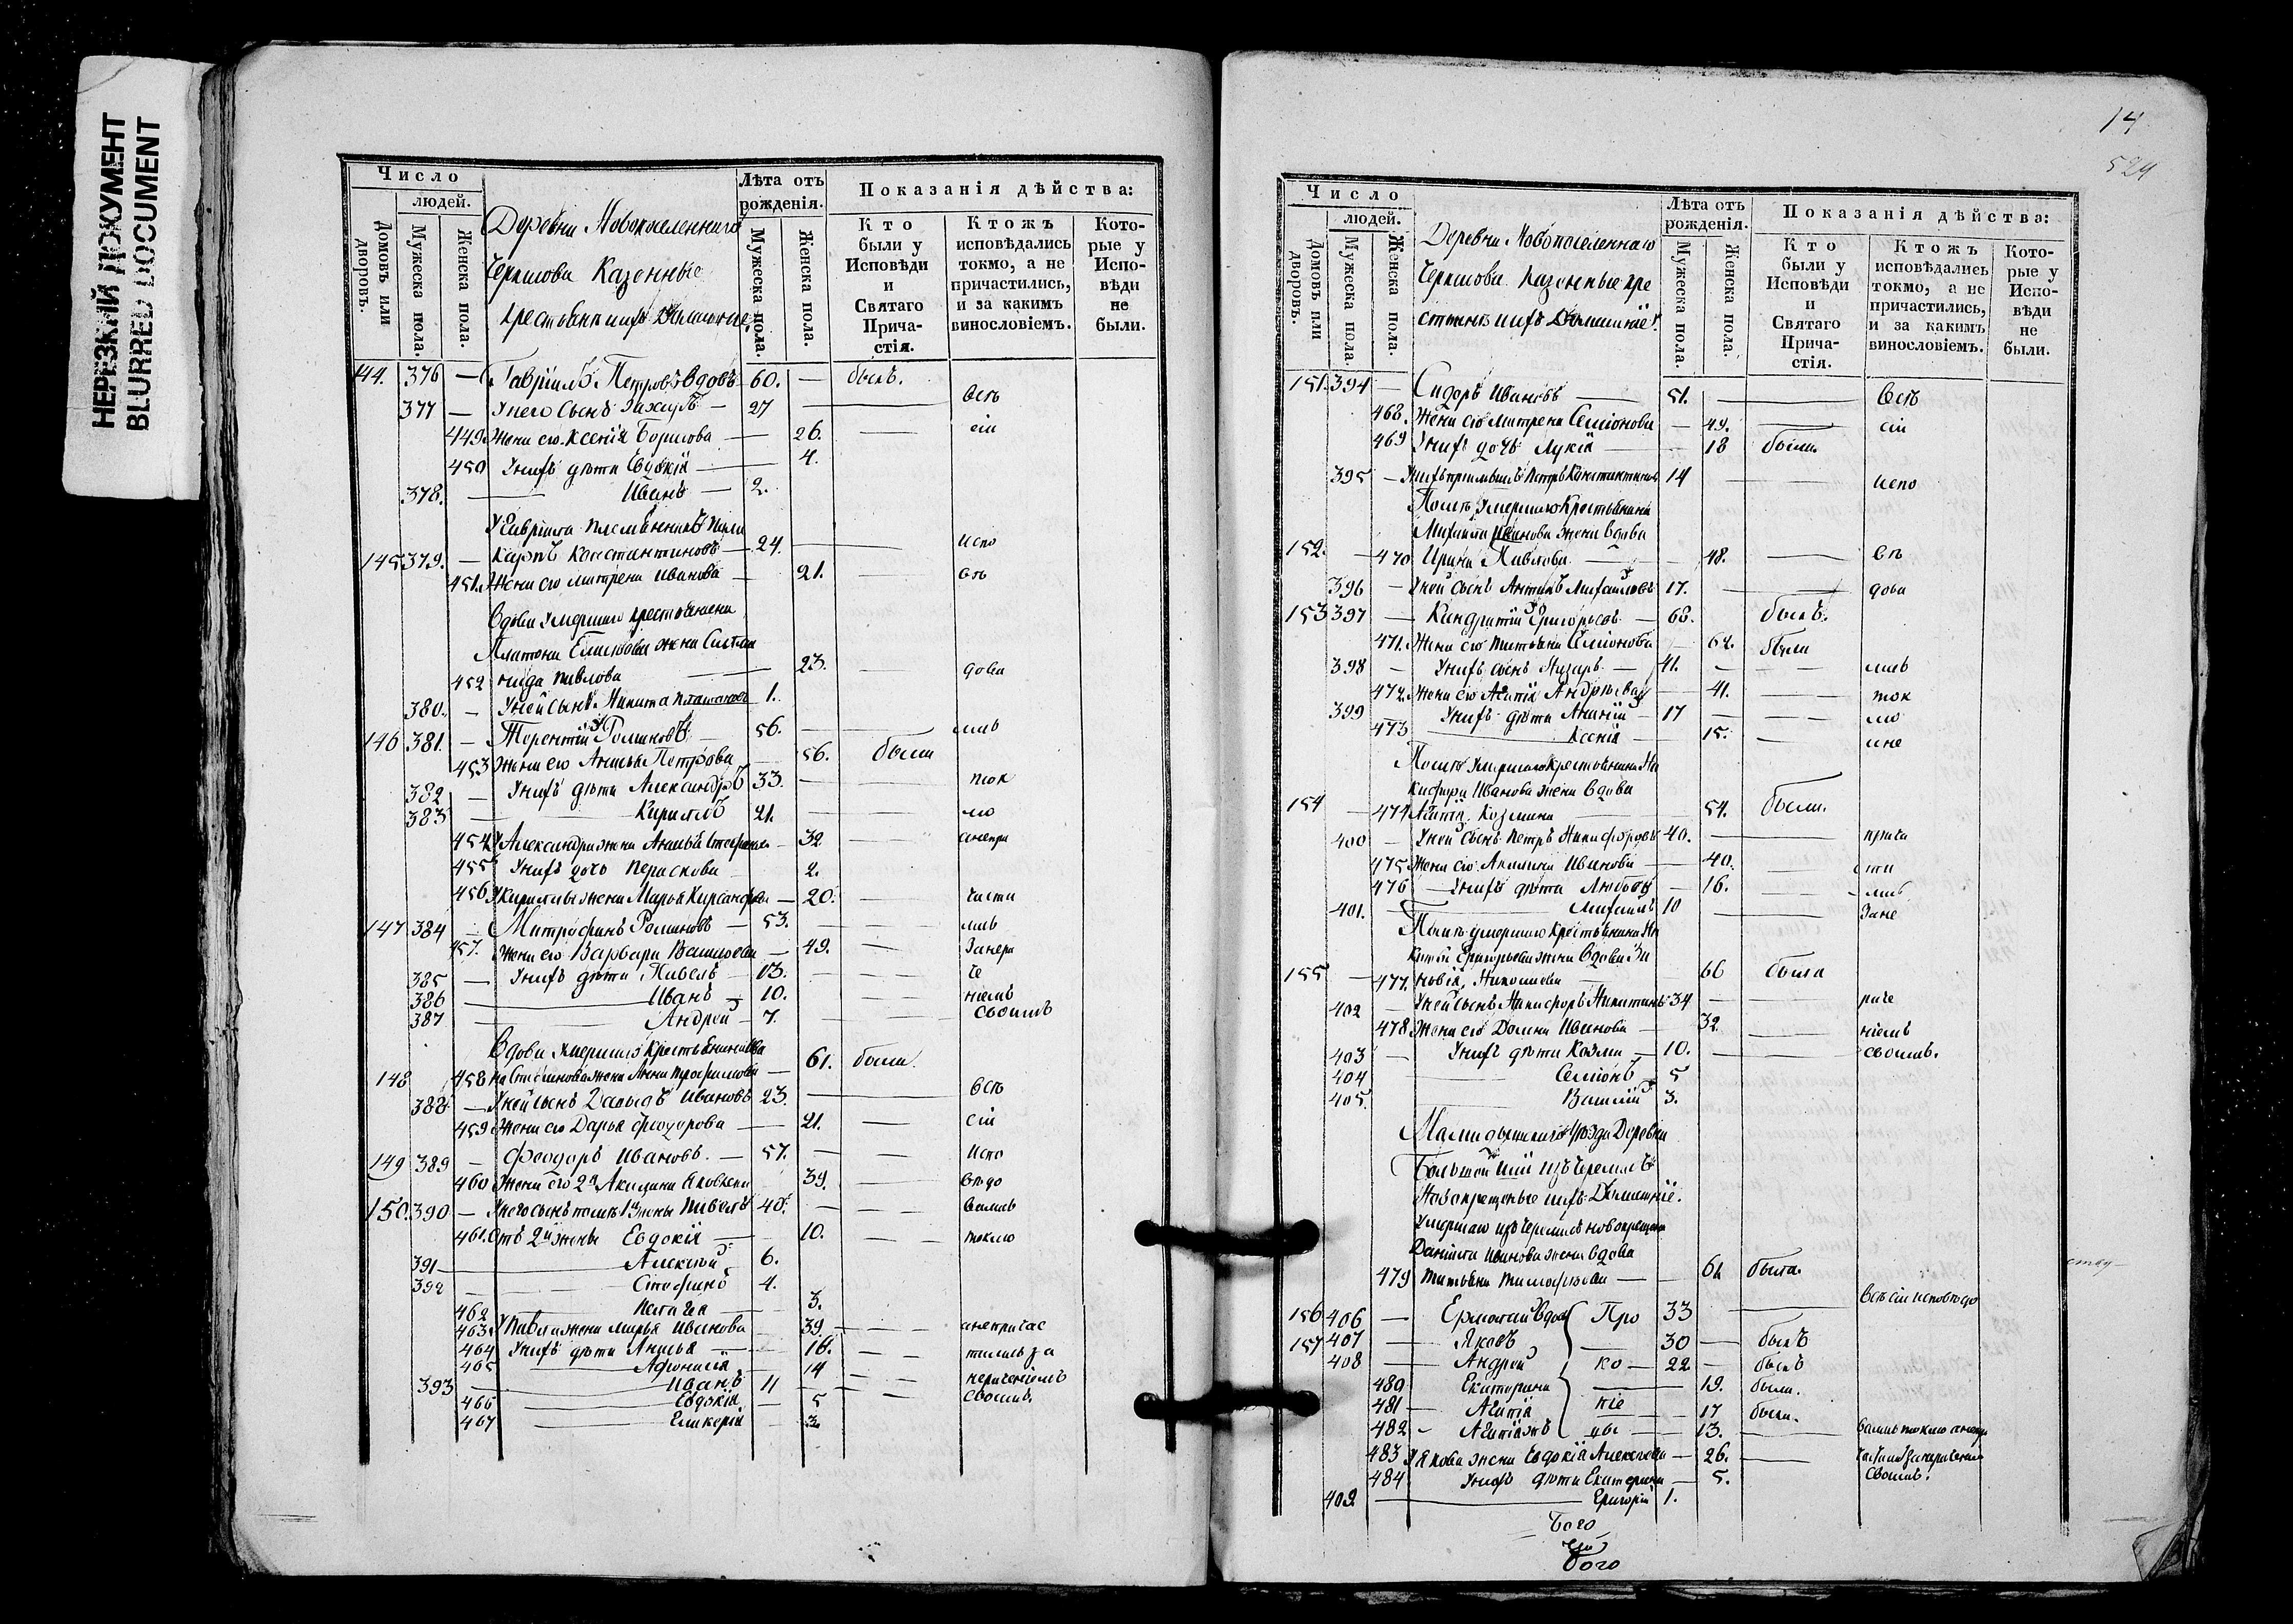 НЕРЕЗКИЙ ДОКУМЕНТ
BLURRED DOCUMENT
Число
людей.
Домовъ или дворовъ.
Мужеска пола.
Женска пола.
Деревни Новопоселеннаго
Казенные
Лѣта отъ рожденія.
Мужеска пола.
Женска пола.
Показанія дѣйства:
Кто были у Исповѣди и Святаго Причастія.
Ктожъ исповѣдались токмо, а не причастились, и за какимъ винословіемъ.
Которые у Исповѣди не были.
144. 376 — Гавріилъ Петровъ вдовъ 60. — былъ.
377 — У него сынъ 27 — всѣ
449 Жена его Ксенія Борисова — 26. — сіи
450 У нихъ дѣти Евдокія — 4.
378. — Иванъ — 2.
У Гавріила племянникъ
145 379. — Карпъ Константиновъ — 24. — испо
451. Жена его Матрена Иванова — 21. — вѣ
Вдова умершаго крестьянина
Платона жена
452 Павлова — 23. — дова
380. — У ней сынъ Никита Платоновъ 1.
146 381. — Терентій Романовъ — 56. — лись
453 Жена его Анисья Петрова 56. была
382 — У нихъ дѣти Александръ 33. — ток
383 — Кирилъ 21. — мо
454 У Александра жена Анисья — 32 — анепри
455 У нихъ дочь Параскова 2.
456 У Кирилы жена Марья — 20. — части
147 384 — Митрофанъ Романовъ — 53. — лись
457. Жена его Варвара Васильева — 49. — Занера
385 — У нихъ дѣти Павелъ — 13. — че
386 — Иванъ — 10. — ніемъ
387 — Андрей — 7. — своимъ
Вдова умершаго крестьянина
148 458 жена Анна — 61. была.
388 — У ней сынъ Давыдъ Ивановъ 23. — всѣ
459 Жена его Дарья Феодорова — 21. — сіи
149 389 — Феодоръ Ивановъ. — 57. — Испо
460 Жена его 2я Акилина Яковлева 39. — вѣдо
150. 390 — У него сынъ 1й жены Павелъ 40. — вались
461. Отъ 2й жены Евдокія — 10. — токмо
391 — Алексѣй 6.
392 — Стефанъ 4.
462 — Пелагея — 3.
463 У Павла жена Марья Иванова 39. — анепричас
464 У нихъ дѣти Анисья — 16. — тились за
465 — Афонасія — 14
393 — Иванъ 11 — нераченіемъ
466 — Евдокія — 5 — своимъ.
467 — Гликерія — 3
14
529
Число
людей.
Домовъ или дворовъ.
Мужеска пола.
Женска пола.
Деревни Новопоселеннаго
Казенные кре
Лѣта отъ рожденія.
Мужеска пола.
Женска пола.
Показанія дѣйства:
Кто были у Исповѣди и Святаго Причастія.
Ктожъ исповѣдались токмо, а не причастились, и за какимъ винословіемъ.
Которые у Исповѣди не были.
151. 394 — Сидоръ Ивановъ — 51. — всѣ
468. Жена его Матрена Семіонова — 49. — сіи
469 У нихъ дочь Лукія — 18 была.
395 — Петръ Константиновъ 14 — испо
Послѣ умершаго крестьянина
Михаила Иванова жена вдова
152. — 470 Ирина Павлова — 48. — вѣ
396 — У ней сынъ Антипъ Михайловъ 17. — дова
153 397 — Кандратій Григорьевъ — 68. былъ.
471. Жена его Татьяна Семіонова — 62. была
398 — У нихъ сынъ Назаръ — 41. — лись
472. Жена его Агапія Андрѣева — 41. — ток
399 — У нихъ дѣти Ананій — 17 — мо
473 — Ксенія — 15. — ане
Послѣ умершаго крестьянина Ни
кифора Иванова жена вдова
154 — 474 Агапія Козмина 54. была.
400 — У ней сынъ Петръ Никифоровъ 40. — прича
475 Жена его Акилина Иванова — 40. — сти
476 — У нихъ дѣти Любовь — 16. — лись
401. — Михаилъ 10 — Зане
Послѣ умершаго крестьянина Ни
киты Григорьева жена вдова Зи
155 — 477. новія Николаева — 66 была
402 — У ней сынъ Никифоръ Никитинъ 34 — раче
478 Жена его Домна Иванова — 32 — ніемъ
403 — У нихъ дѣти Козма — 10. — своимъ.
404 — Семіонъ — 5
405. — Василій 3.
Уѣзда Деревни
Большой изъ Черемисъ
Новокрещеные
Умершаго изъ Черемисъ новокрещена
Даніила Иванова жена вдова
479 Татьяна Тимофѣева — 61 была.
всѣ сіи исповѣдо
156 406 — Ермолай вдовъ Про 33
157 407 — Яковъ — 30 — былъ
408 — Андрей ко — 22 — былъ
480 Екатерина — 19. была.
481 — Агапія піе — 17 была.
482 — 13. — вались токмо анепри
483 У Якова жена Евдокія Алексѣева — 26. —
484 У нихъ дѣти Екатерина — 5. своимъ.
409 — Григорій 1.